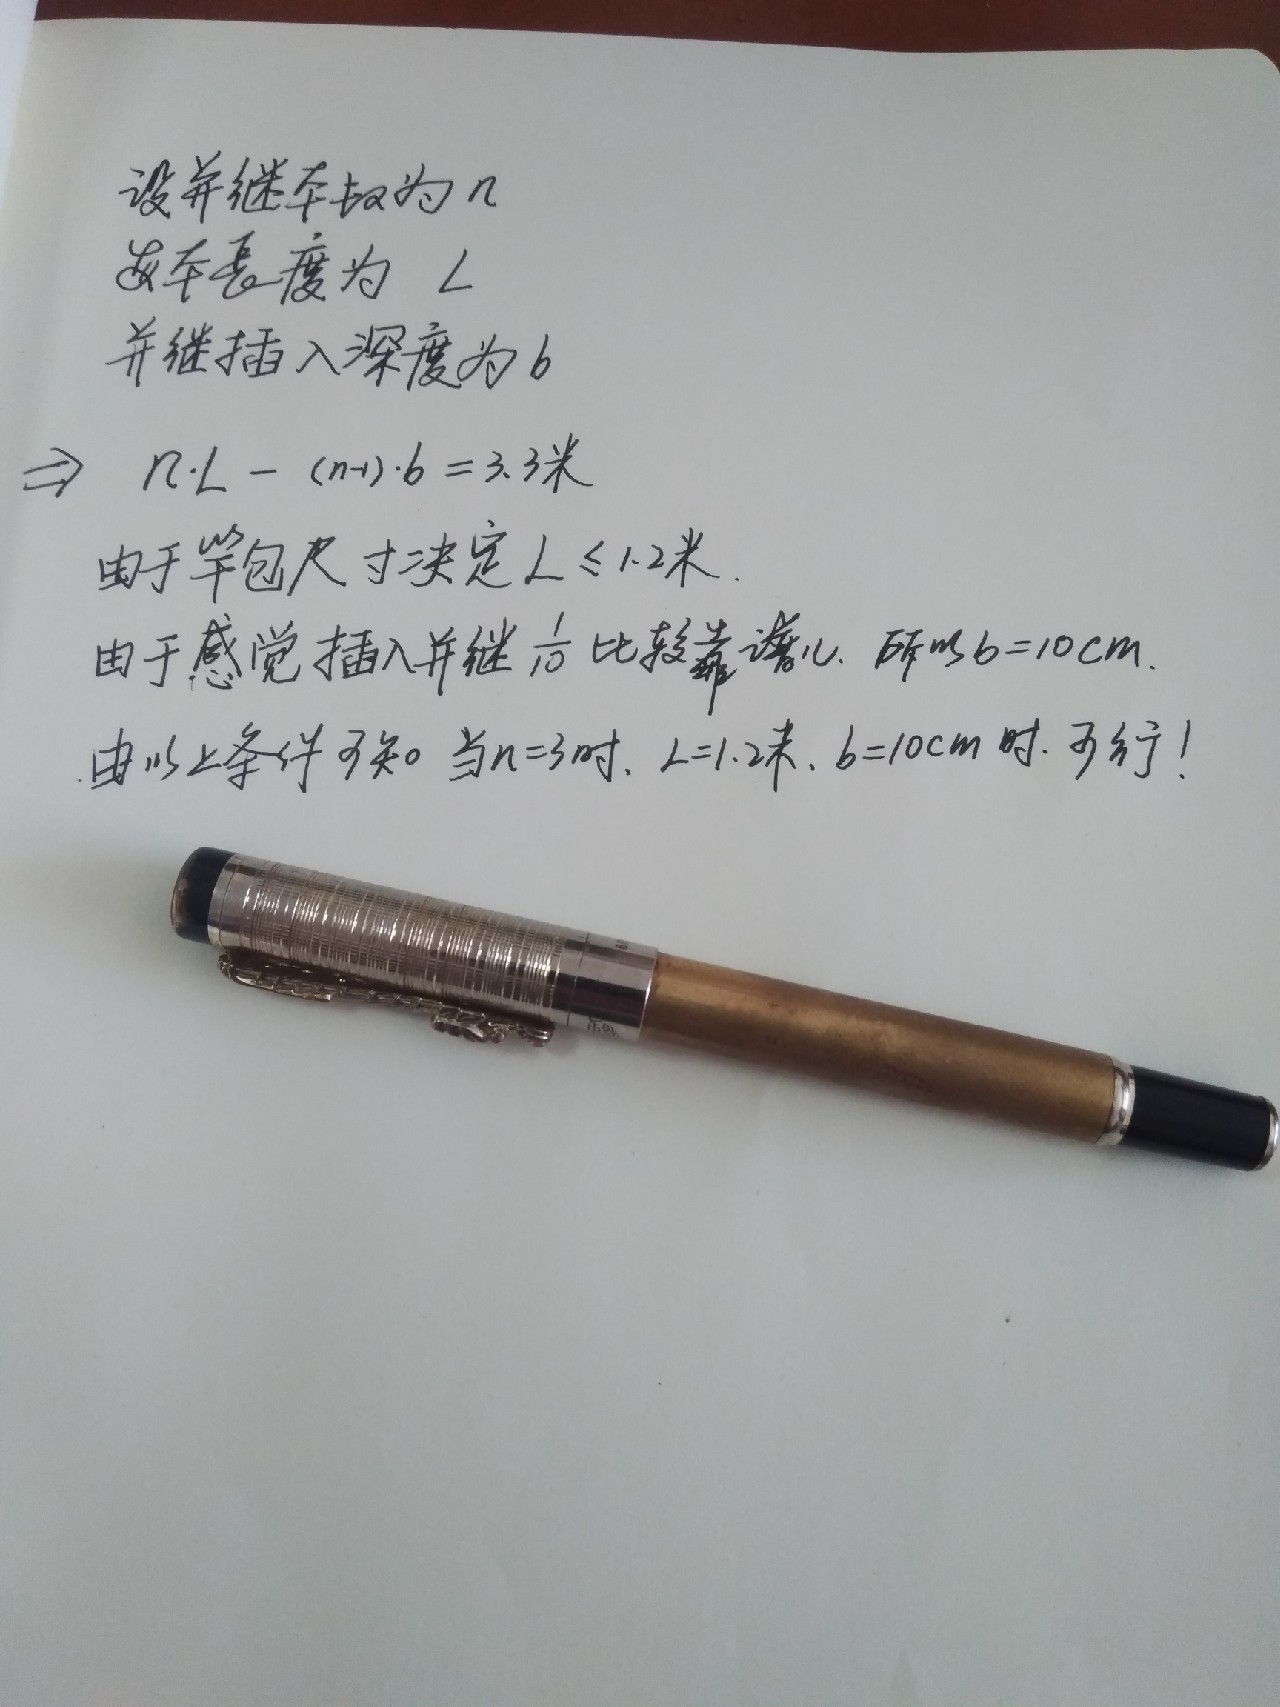 设并继节数为n
每节長度为 L
并继插入深度为b
⇒ n·L - (n-1)·b = 3.3米
由于竿包尺寸决定L≤1.2米.
由于感觉插入并继1/10比较靠谱儿. 所以b=10cm.
由以上条件可知。当n=3时、L=1.2米、b=10cm时.可行!